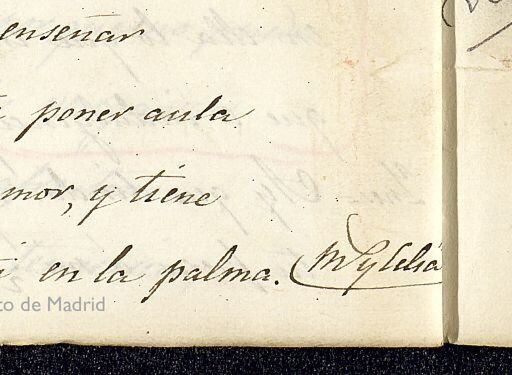 enseñar
poner aula
mor, y tiene
en la palma.
to de Madrid